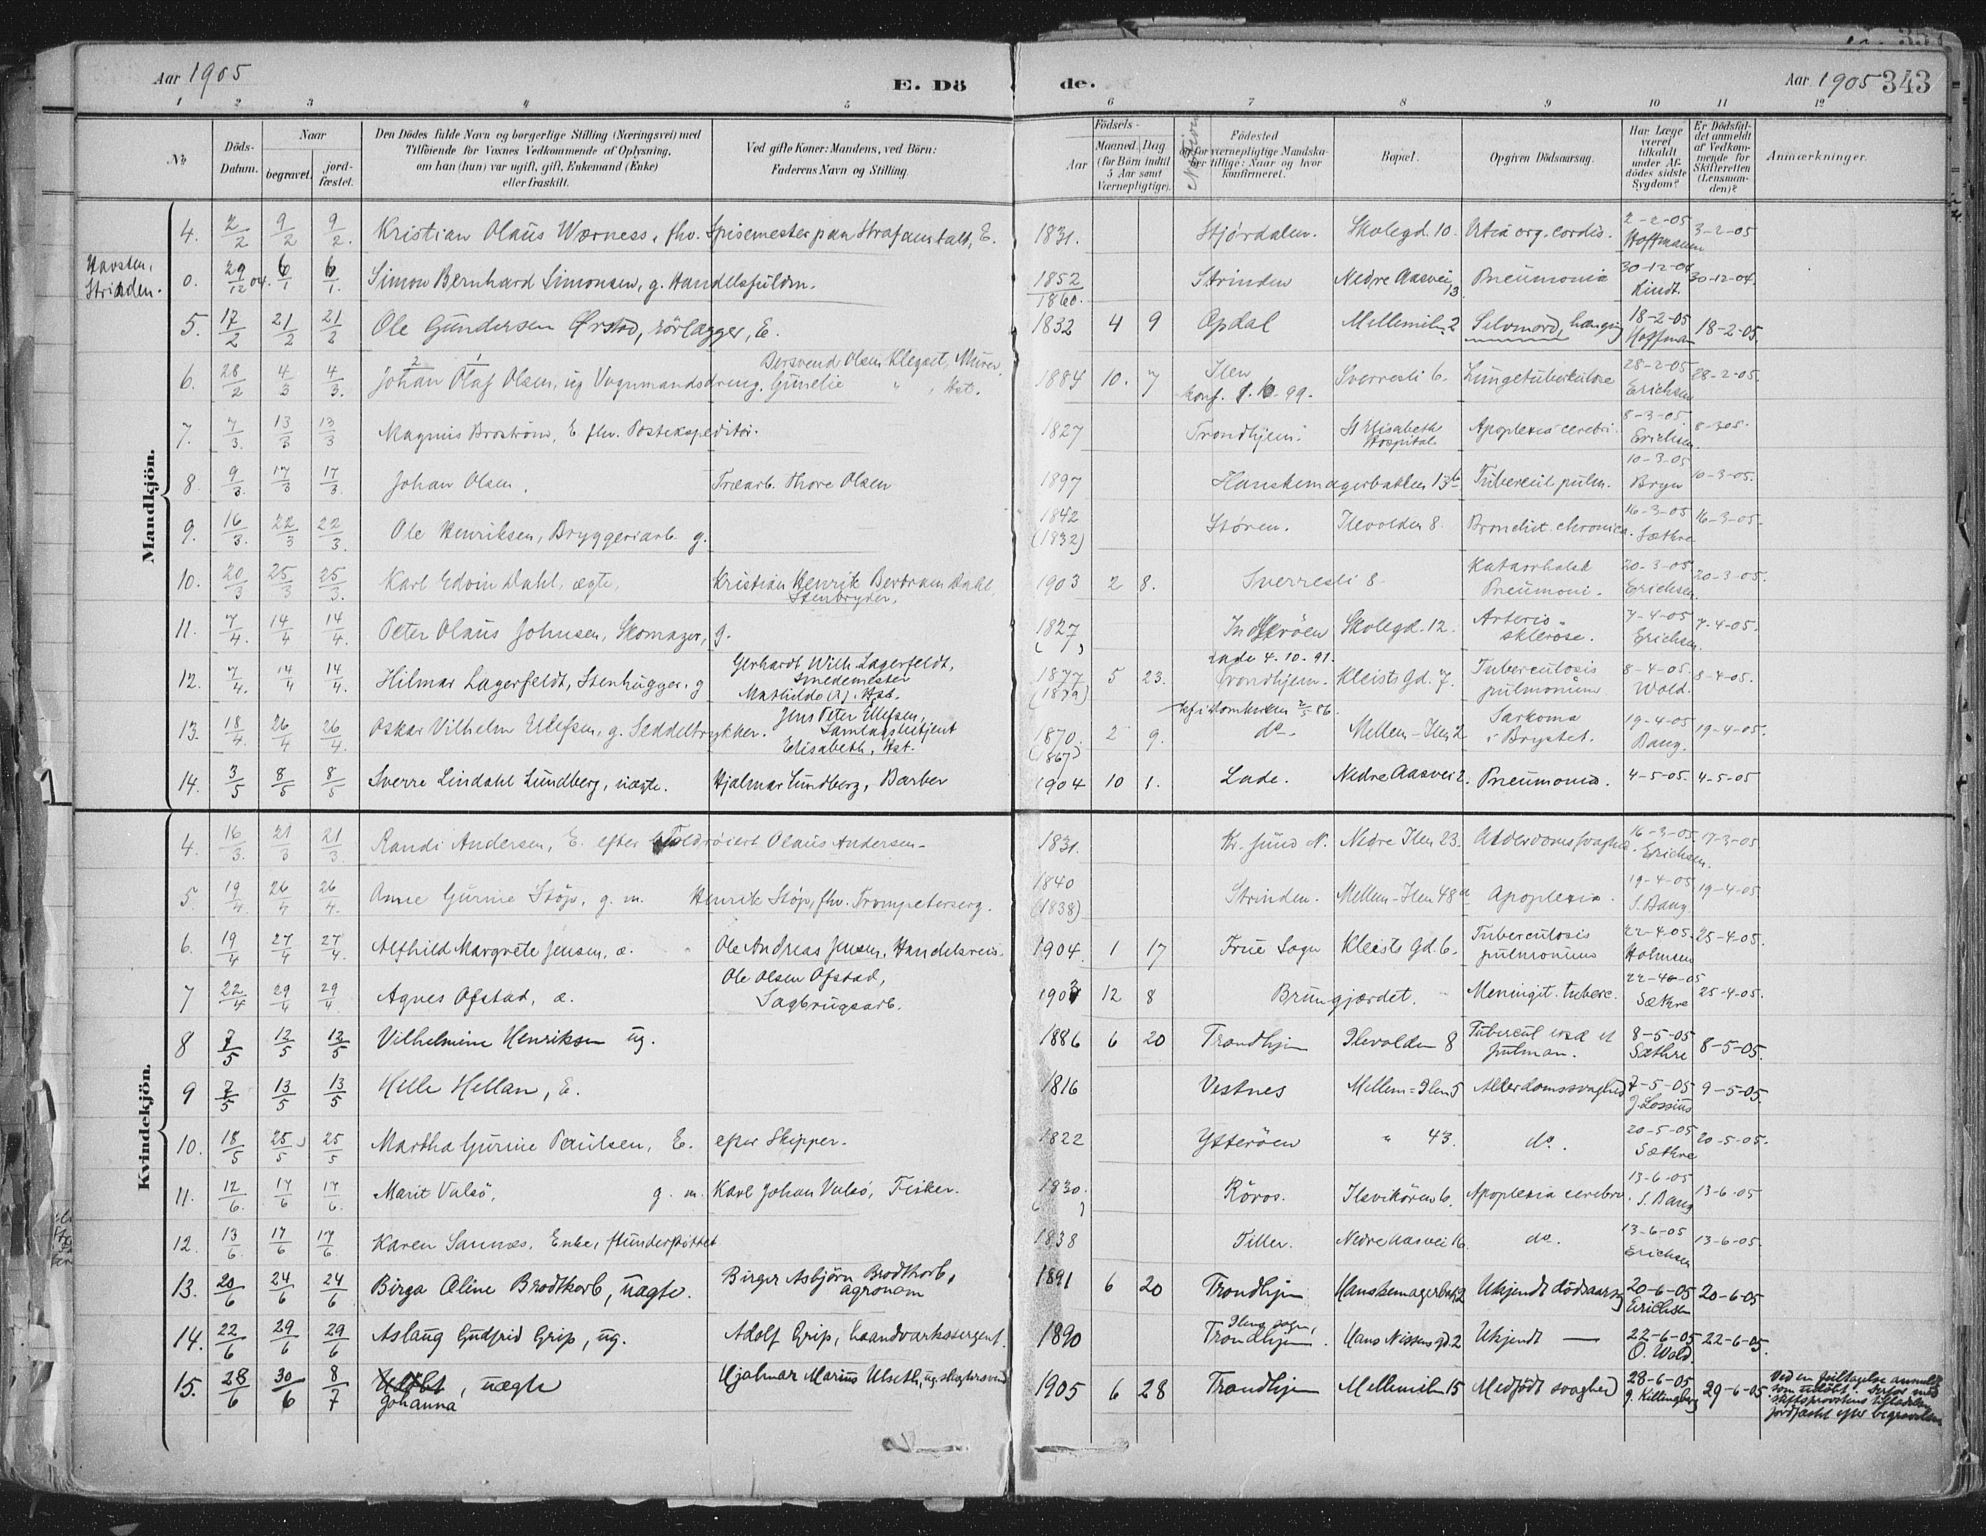 Aar 1905
E. Dö
de.
Aar 1905 343
1 2 3 4 5 6 7 8 9 10 11 12
No
Döds-Datum.
Naar
begravet.
jord-fæstet.
Den Dödes fulde Navn og borgerlige Stilling (Næringsvei) med
Tilföiende for Voxnes Vedkommende af Oplysning,
om han (hun) var ugift, gift, Enkemand (Enke)
eller fraskilt.
Ved gifte Koner: Mandens, ved Börn:
Faderens Navn og Stilling.
Födsels-
Aar
Maaned (for Börn indtil 5 Aar samt Værnepligtige).
Dag
Födested
og for værnepligtige Mandska-
ber tillige: Naar og hvor
konfirmeret.
Bopæl.
Opgiven Dödsaarsag.
Har Læge været tilkaldt under Afdödes sidste Sygdom?
Er Dödsfaldet anmeldt af Vedkommende for Skifteretten (Lensmanden)?
Anmærkninger.
Mandkjön.
4. 2/2 9/2 9/2. Kristian Olaus Wærness, fhv. Spisemester paa Strafanstalt, E. 1831. Stjørdalen. Skolegd. 10. Vitia org. cordis. 2-2-05 Hoffmann 3-2-05
Havsten, Strinden. 0. 29/12 04. 6/1 6/1. Simon Bernhard Simonsen, g. Handelsfuldm. 1852 1860. Strinden Nedre Aasvei 13 Pneumonia 30-12-04 Kindt 30-12-04.
5. 17/2 21/2 21/2 Ole Gundersen Ørstad, rörlægger, E. 1832 4 9 Opdal Mellemiln 2 Selvmord, hænging 18-2-05 Hoffman 18-2-05.
6. 28/2 4/3 4/3. Johan Olaf Olsen, ug Vognmandsdreng. Bersvend Olsen Klegset, Murer. Gunelie " , Hst. 1884 10. 7 Ilen konf. 1. 10. 99. Sverresli 6. Lungetuberkulose 28-2-05 Erichsen 28-2-05.
7. 7/3. 13/3 13/3 Magnus Broström, E. fhv. Postekspeditör. 1827 Trondhjem. St Elisabeth Hospital. Apoplexia cerebri. 8-3-05 Erichsen 8-305.
8. 9/3. 17/3 17/3. Johan Olsen. Træarb. Thore Olsen 1897 Hanskemagerbakken 13b Tubercul. pulm. 10-3-05 Bryn 10-3-05.
9. 16/3. 22/3 22/3. Ole Henriksen, Bryggeriarb. g. 1842 (1832) Støren. Ilevolden 8. Bronchit chronica. 16-3-05 Sæthre 16-3-05.
10. 20/3 25/3 25/3. Karl Edvin Dahl, ægte, Kristian Henrik Bertram Dahl, Stenbryder. 1903 2 8. Sverresli 8 Katarrhalsk Pneumoni. 20-3-05 Erichsen. 20-3-05.
11. 7/4. 14/4 14/4. Peter Olaus Johnsen, Skomager, g. 1827 Inderöen Skolegd. 12. Arterio-sklerose. 7-4-05 Erichsen 7-4-05.
12. 7/4. 14/4 14/4. Hilmar Lagerfeldt, Stenhugger. g Gerhardt Wilh. Lagerfeldt, Smedemester Mathilde, Hst. 1877 (1879) 5 23. Lade 4. 10. 91. Trondhjem. Kleists Gd. 7. Tuberculosis pulmonum 8-4-05 Wold. 8-4-05
13. 18/4. 26/4 26/4. Oskar Vilhelm Ellefsen, g. Seddeltrykker. Jens Peter Ellefsen, Samlagsbetjent Elisabeth, Hst. 1870. (1867) 2 9. do. Mellem-Ilen 2 Sarkoma i Brystet. 19-4-05 Bang. 19-4-05.
14. 3/5 8/5 8/5 Sverre Lindahl Lundberg, uægte. Hjalmar Lundberg, Barber 1904 10 1. Lade. Nedre Aasvei 2. Pneumonia. 4-5-05. 4-5-05
Kvindekjön.
4. 16/3. 21/3 21/3 Randi Andersen, E. efter Toldroiert Olaus Andersen. 1831. Kr.sund N. Nedre Ilen 23. Alderdomssvaghed. 16-3-05 Erichsen. 17-3-05
5. 19/4 26/4 26/4. Anne Gurine Stöp, g. m. Henrik Stöp, fhv. Trompeterserg. 1840 (1838) Strinden. Mellem-Ilen 48a Apoplexia. 19-4-05 S. Bang 19-4-05
6. 19/4 27/4 27/4. Alfhild Margrete Jensen, æ. Ole Andreas Jensen, Handelsreis. 1904. 1 17 Frue Sogn Kleists Gd. 6. Tuberculosis pulmonum 22-4-05. Holmsen 25-4-05.
7 22/4 29/4 29/4 Agnes Ofstad, æ. Ole Olsen Ofstad, Sagbrugsarb. 1903 12 8 Brungjærdet. Meningit. tuberc. 22-4-05 Sæthre 25-4-05.
8 7/5 12/5 12/5 Vilhelmine Henriksen ug. 1886 6 20 Trondhjem Ilevolden 8 Tubercul et pulmon. 8-5-05 Sæthre 8-5-05.
9 7/5 13/5 13/5 Helle Hellan, E. 1816 Vestnes Mellem-Ilen 5 Alderdomssvaghed 7-5-05 J. Lossius 9-5-05.
10. 18/5 25/5 25/5 Martha Gurine Paulsen, E. efter Skipper. 1822 Ytteröen " 43. do. 20-5-05 Sæthre 20-5-05.
11. 12/6. 17/6 17/6. Marit Valsö, g. m. Karl Johan Valsö, Fisker. 1830. Röros. Ilsvikören 6. Apoplexia cerebri 13-6-05 S. Bang 13-6-05
12. 13/6. 17/6 17/6. Karen Sannæs, Enke, fundersöttet 1838 Tiller. Nedre Aasvei 16. do. 13-6-05 Erichsen 13-6-05.
13. 20/6 24/6 24/6 Birga Oline Brodtkorb, uægte. Birger Asbjörn Brodtkorb, agronom 1891 6 20 Trondhjem Hanskemagerbak 2 Ukjendt dödsaarsag 20-6-05 Erichsen 20-6-05
14. 22/6 29/6 29/6 Aslaug Gudfrid Grip, ug. Adolf Grip, haandværkssergent. 1890 Ilens sogn, Trondhjem. Hans Nissens gd. 2 Ukjendt — 22-6-05 O. Wold. 22-6-05.
15. 28/6 30/6 8/7 Johanna, uægte Hjalmar Marius Ulseth, ug. slagtersvend 1905 6 28 Trondhjem Mellemiln 15 Medfödt svaghed 28-6-05 J. Killingberg 29-6-05. Ved en feiltagelse anmeldt som udöbt. Derfor med stiftsprovstens tilladelse jordfæstet efter begravelsen